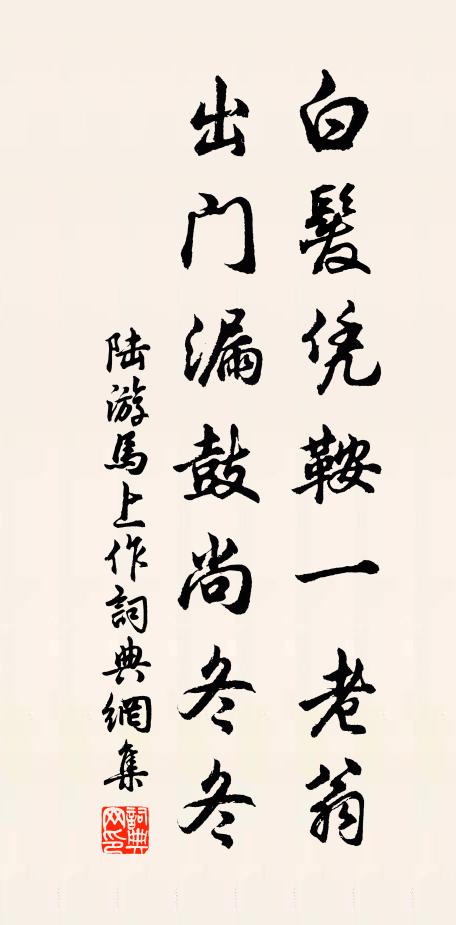 白髮凭鞍一老翁
出门漏鼓尚冬冬
陆游馬上作詞典網集
詞典网印